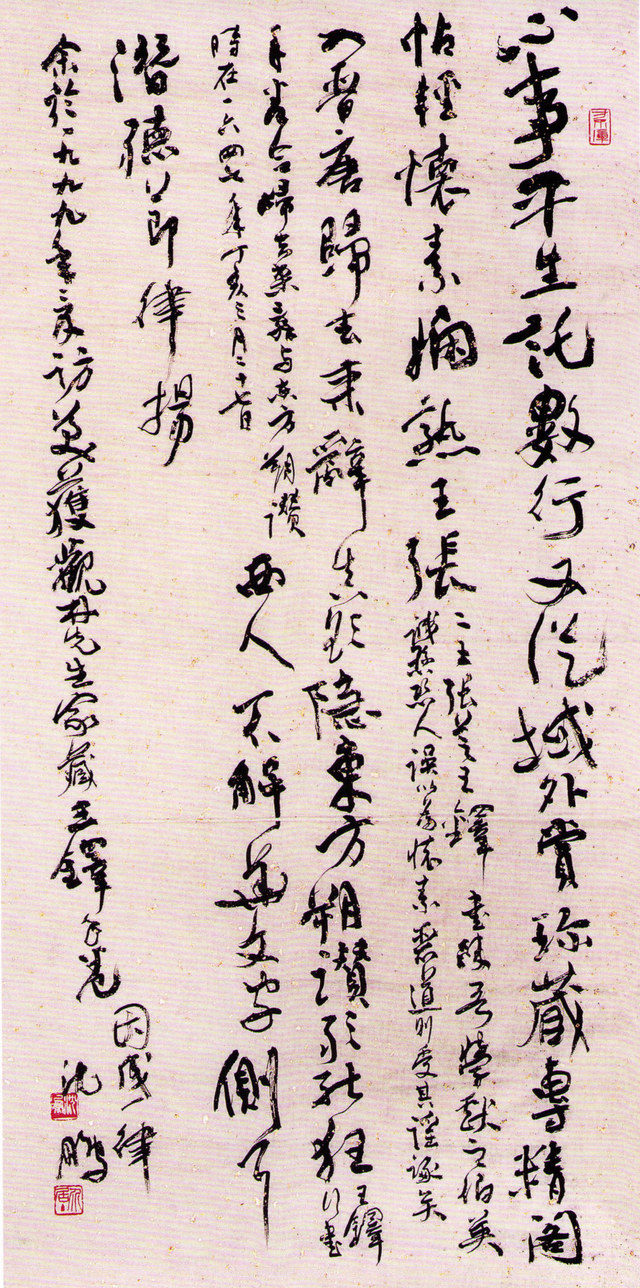 心事平生託數行又從域外賞珍藏專精閣
帖輕懷素嫻熟王張
二王張芝王鐸書跋吾學獻之伯英
恐人誤以為懷素惡道則受其謠諑矣
入晉唐歸去來辭真欲隱東方朔讚能狂
王鐸
行書
手卷合歸去來辭與東方朔讚
時在一六四七年丁亥三月二十七日
西人不解華文字側耳
潛聽節律揚
余於一九九九年三月訪美獲觀先生家藏王鐸手卷
因成一律
沈鵬